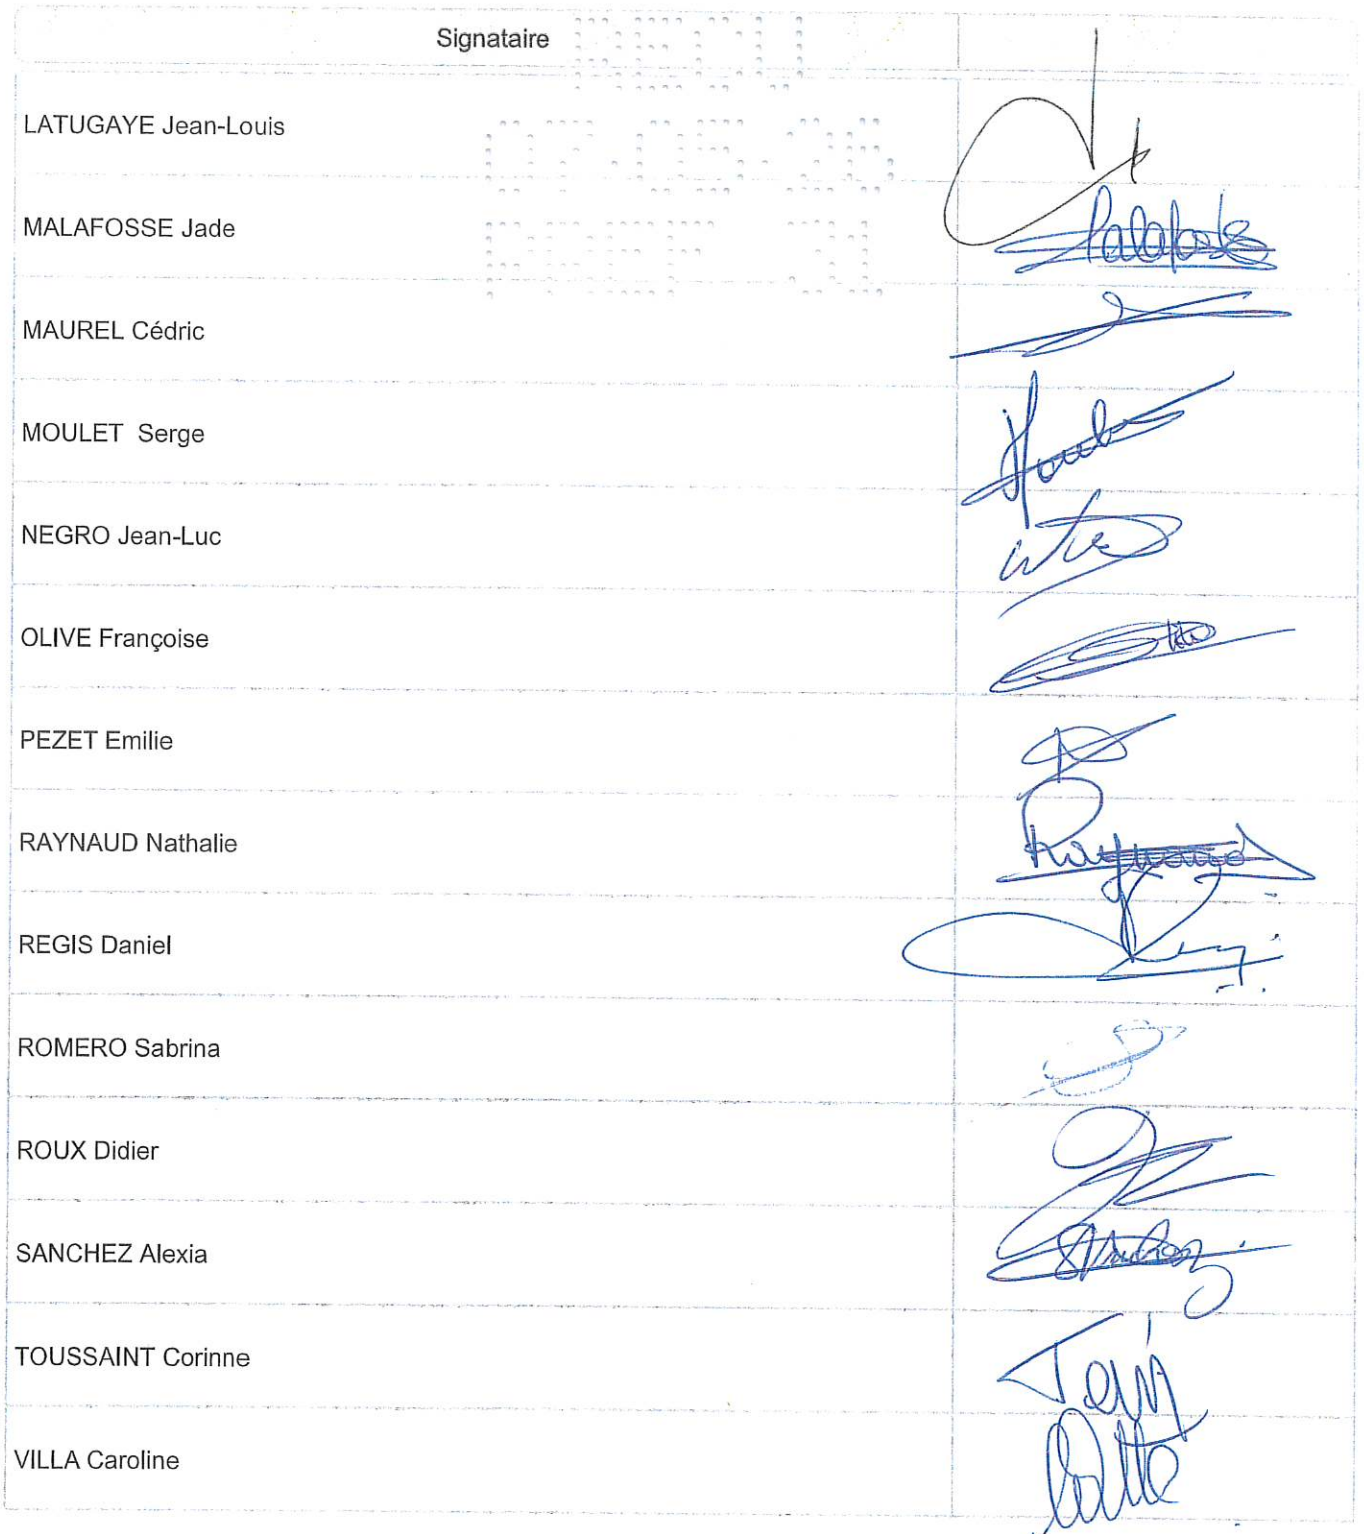 Signataire
REÇU
07.05.26
PREF 31
LATUGAYE Jean-Louis
MALAFOSSE Jade
MAUREL Cédric
MOULET Serge
NEGRO Jean-Luc
OLIVE Françoise
PEZET Emilie
RAYNAUD Nathalie
Raynaud
REGIS Daniel
ROMERO Sabrina
ROUX Didier
SANCHEZ Alexia
Sanchez
TOUSSAINT Corinne
VILLA Caroline